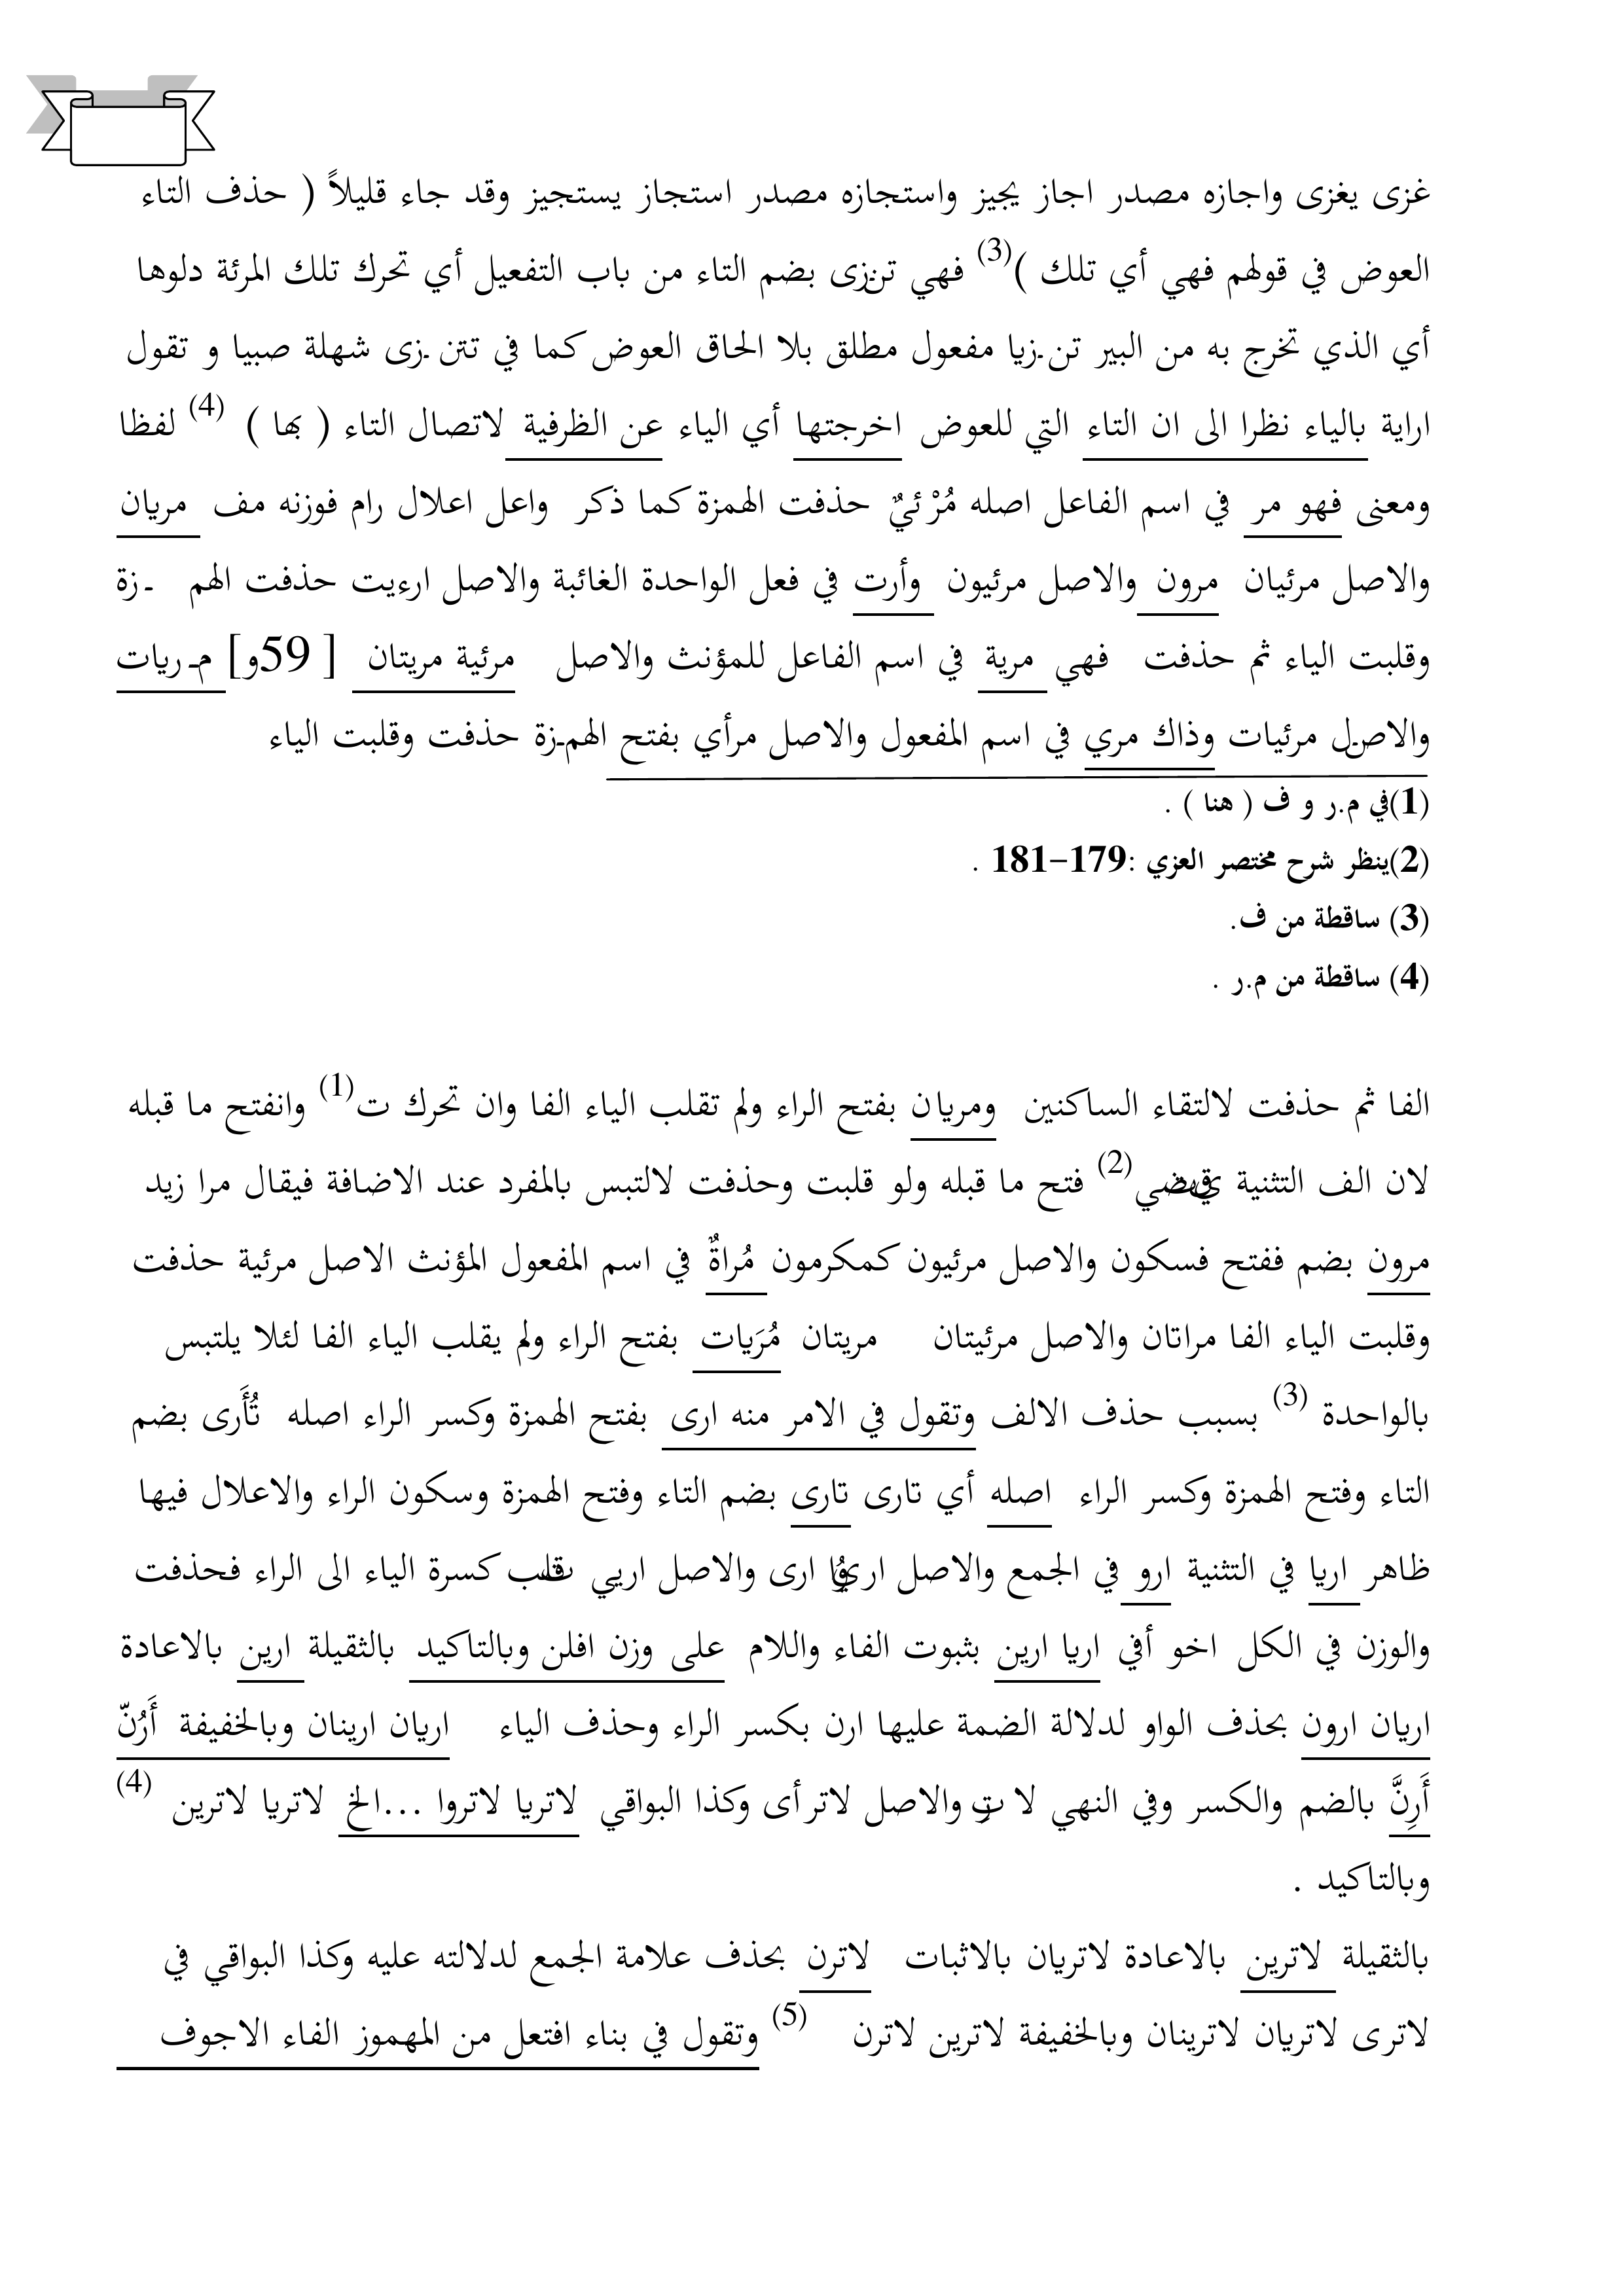 غزى يغزى واجازه مصدر اجاز يجيز واستجازه مصدر استجاز يستجيز وقد جاء قليلاً ( حذف التاء
العوض في قولهم فهي أي تلك )(3) فهي تنزى بضم التاء من باب التفعيل أي تحرك تلك المرئة دلوها
أي الذي تخرج به من البير تنـزيا مفعول مطلق بلا الحاق العوض كما في تتنـزى شهلة صبيا و تقول
اراية بالياء نظرا الى ان التاء التي للعوض اخرجتها أي الياء عن الظرفية لاتصال التاء ( بها ) (4) لفظا
ومعنى فهو مر في اسم الفاعل اصله مُرْئيٌ حذفت الهمزة كما ذكر واعل اعلال رام فوزنه مف مريان
والاصل مرئيان مرون والاصل مرئيون وأرت في فعل الواحدة الغائبة والاصل ارءيت حذفت الهمـزة
وقلبت الياء ثم حذفت فهي مرية في اسم الفاعل للمؤنث والاصل مرئية مريتان [ 59و] مـريات
والاصـل مرئيات وذاك مري في اسم المفعول والاصل مرأي بفتح الهمـزة حذفت وقلبت الياء
(1)في م.ر و ف ( هنا ) .
(2)ينظر شرح مختصر العزي :179-181 .
(3) ساقطة من ف.
(4) ساقطة من م.ر .
الفا ثم حذفت لالتقاء الساكنين ومريان بفتح الراء ولم تقلب الياء الفا وان تحرك ت(1) وانفتح ما قبله
لان الف التثنية (2) فتح ما قبله ولو قلبت وحذفت لالتبس بالمفرد عند الاضافة فيقال مرا زيد
مرون بضم ففتح فسكون والاصل مرئيون كمكرمون مُراةٌ في اسم المفعول المؤنث الاصل مرئية حذفت
وقلبت الياء الفا مراتان والاصل مرئيتان مريتان مُرَيات بفتح الراء ولم يقلب الياء الفا لئلا يلتبس
بالواحدة (3) بسبب حذف الالف وتقول في الامر منه ارى بفتح الهمزة وكسر الراء اصله تُأَرى بضم
التاء وفتح الهمزة وكسر الراء اصله أي تارى تارى بضم التاء وفتح الهمزة وسكون الراء والاعلال فيها
ظاهر اريا في التثنية ارو في الجمع والاصل ارى والاصل اريي كسرة الياء الى الراء فحذفت
والوزن في الكل اخو أفي اريا ارين بثبوت الفاء واللام على وزن افلن وبالتاكيد بالثقيلة ارين بالاعادة
اريان ارون بحذف الواو لدلالة الضمة عليها ارن بكسر الراء وحذف الياء اريان ارينان وبالخفيفة أَرُنّ
أَرِنَّ بالضم والكسر وفي النهي لا والاصل لاترأى وكذا البواقي لاتريا لاتروا ...الخ لاتريا لاترين (4)
وبالتاكيد .
بالثقيلة لاترين بالاعادة لاتريان بالاثبات لاترن بحذف علامة الجمع لدلالته عليه وكذا البواقي في
لاترى لاتريان لاترينان وبالخفيفة لاترين لاترن (5) وتقول في بناء افتعل من المهموز الفاء الاجوف